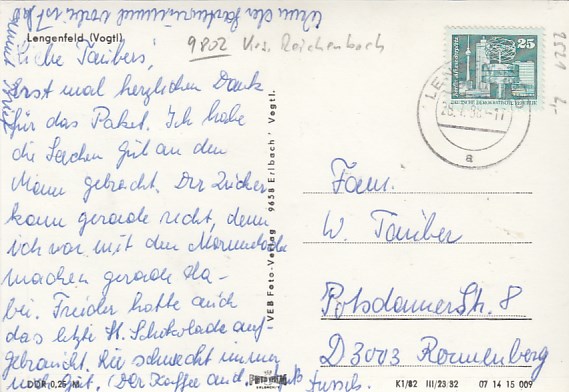 Wenn der
Lengenfeld (Vogtl)
9802 Krs. Reichenbach
Liebe Taubers,
Erst mal herzlichen Dank
für das Paket. Ich habe
die Sachen gut an den
Mann gebracht. Der Zucker
kam gerade recht, denn
ich war mit den
machen gerade da-
bei. Frieder hatte auch
das letzte St. Schokolade auf-
gebraucht. Sie schmeckt immer
Der Kaffee auch
VEB Foto-Verlag 9658 Erlbach/Vogtl.
25
DEUTSCHE DEMOKRATISCHE REPUBLIK
a
Fam.
W. Tauber
Potsdamer Str. 8
D3003 Ronnenberg
DDR 0,25 M
K1/82 III/23 32 07 14 15 009